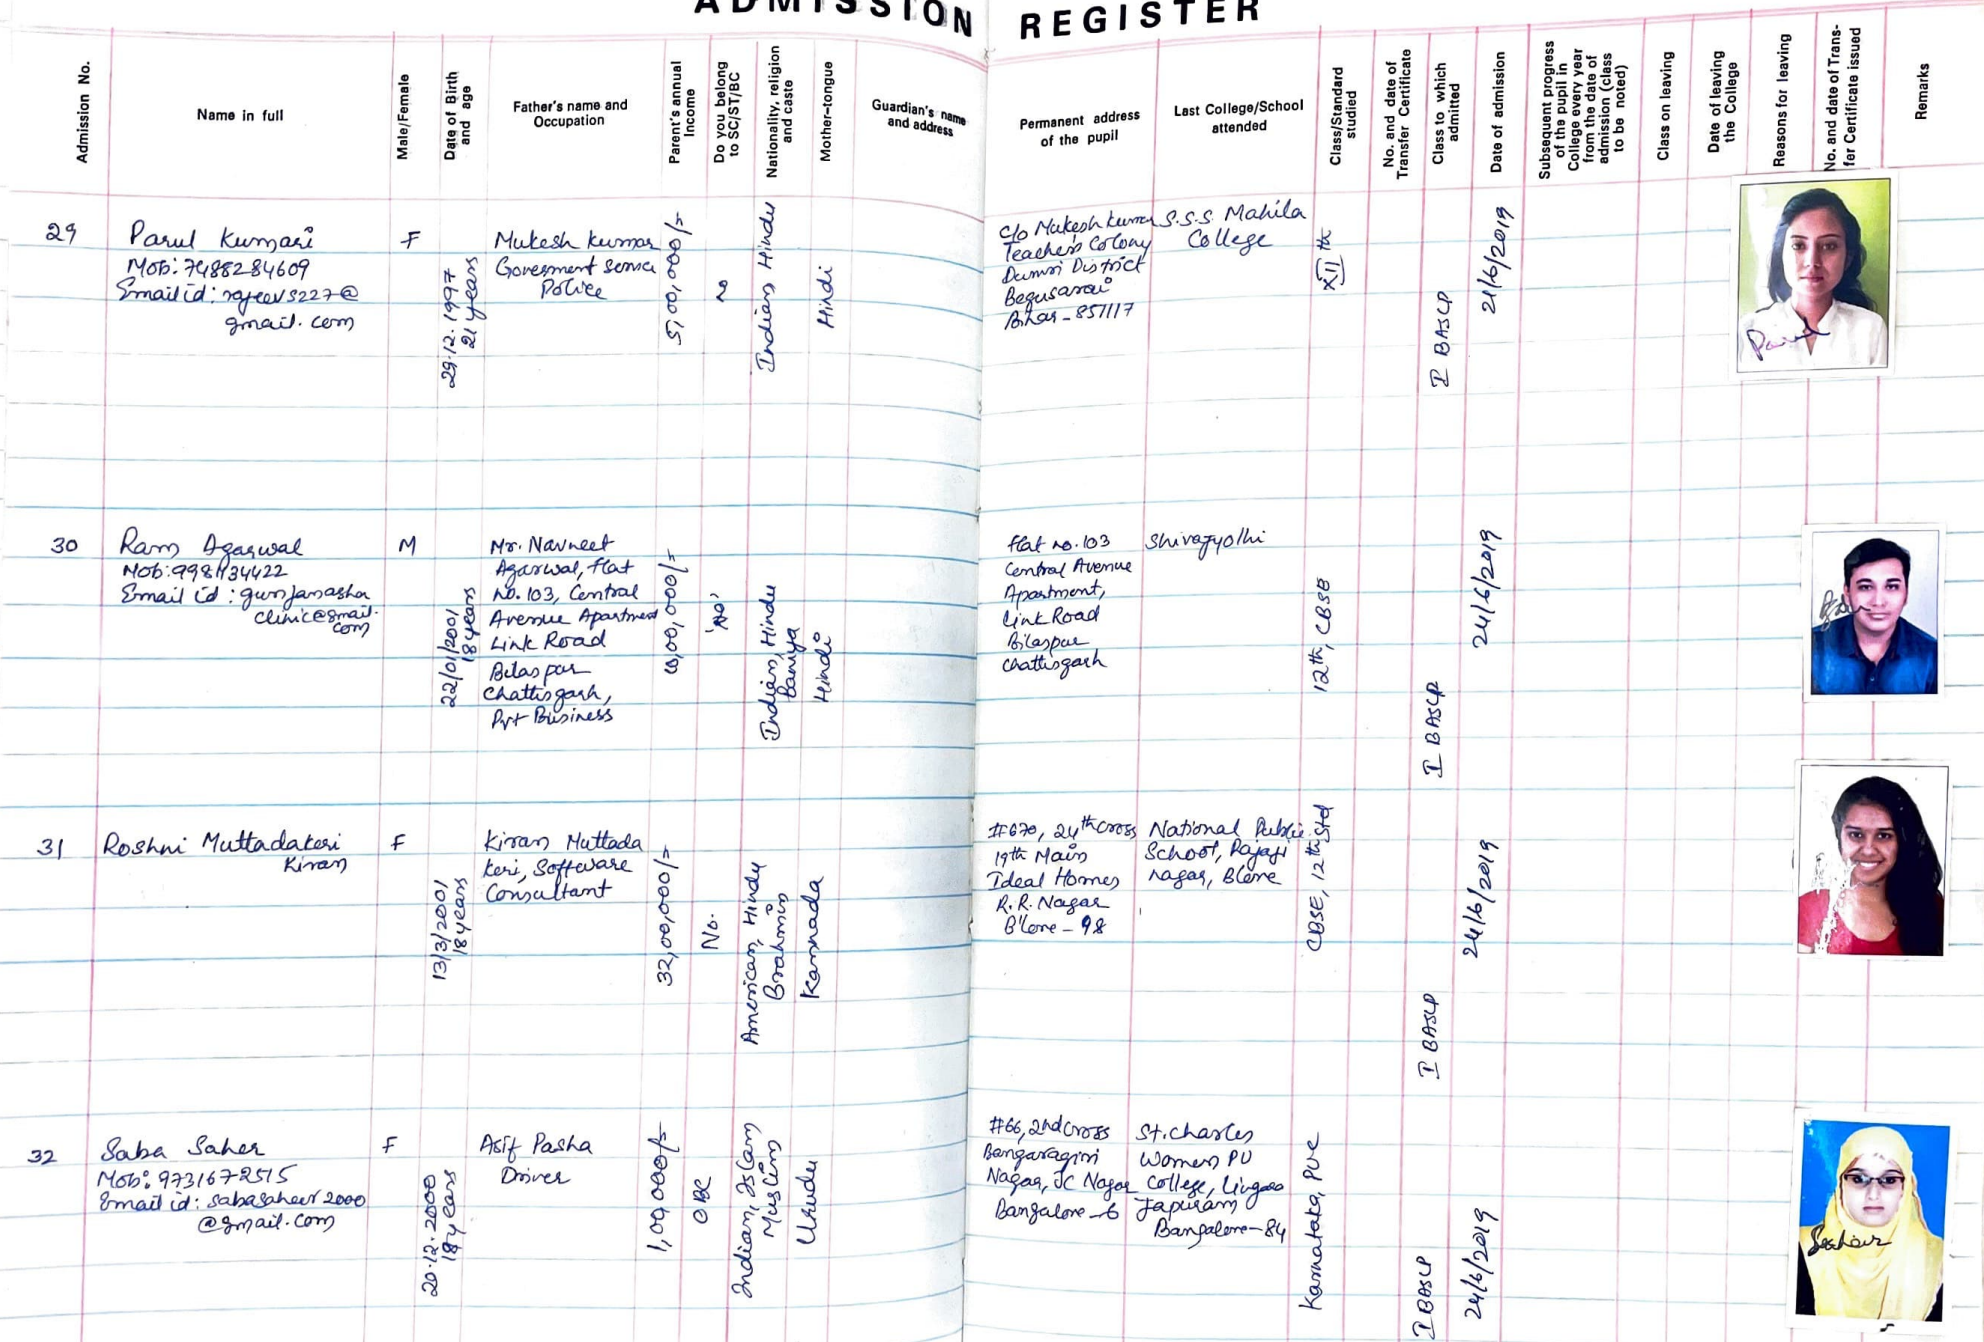 ADMISSION REGISTER
Admission No.
Name in full
Male/Female
Date of Birth
and age
Father's name and
Occupation
Parent's annual
Income
Do you belong
to SC/ST/BC
Nationality, religion
and caste
Mother-tongue
Guardian's name
and address
Permanent address
of the pupil
Last College/School
attended
Class/Standard
studied
No. and date of
Transfer Certificate
Class to which
admitted
Date of admission
Subsequent progress
of the pupil in
College every year
from the date of
admission (class
to be noted)
Class on leaving
Date of leaving
the College
Reasons for leaving
No. and date of Trans-
fer Certificate issued
Remarks
29
Parul Kumari
Mob: 7488284609
Email id: rajeevs227@
gmail.com
F
29.12.1997
21 years
Mukesh kumar
Government Service
Police
5,00,000/=
no
Indian, Hindu
Hindi
c/o Mukesh kumar
Teachers Colony
Dumri District
Begusarai
Bihar - 851117
S.S.S. Mahila
College
XII th
I BASLP
21/6/2019
Parul
30
Ram Agarwal
Mob: 9981134422
Email id: gunjanasha
clinic@gmail.
com
M
22/01/2001
18 years
Mr. Navneet
Agarwal, flat
no. 103, Central
Avenue Apartment
Link Road
Bilaspur
Chattisgarh,
Pvt Business
,00,000/=
'No'
Indian, Hindu
Baniya
Hindi
flat no. 103
Central Avenue
Apartment,
Link Road
Bilaspur
Chattisgarh
12th, CBSE
I BASLP
24/6/2019
31
Roshni Muttadakeri
Kiran
F
13/3/2001
18 years
Kiran Muttada
keri, Software
Consultant
32,00,000/=
No.
American, Hindu
Brahmin
Kannada
#670, 24th cross
19th Main
Ideal Homes
R.R. Nagar
B'lore - 98
National Public
School, Rajaji
nagar, Blore
CBSE, 12th Std
I BASLP
24/6/2019
32
Saba Saher
Mob: 9731672515
Email id: sabasaheer2000
@gmail.com
F
20.12.2000
18 years
Asif Pasha
Driver
1,00,000/=
OBC
Indian, Islam
Muslim
Urudu
#66, 2nd cross
Bangaragiri
Nagar, JC Nagar
Bangalore - 6
St. charles
Women PU
College, Lingara
Japuram
Bangalore - 84
Karnataka, PUC
I BASLP
24/6/2019